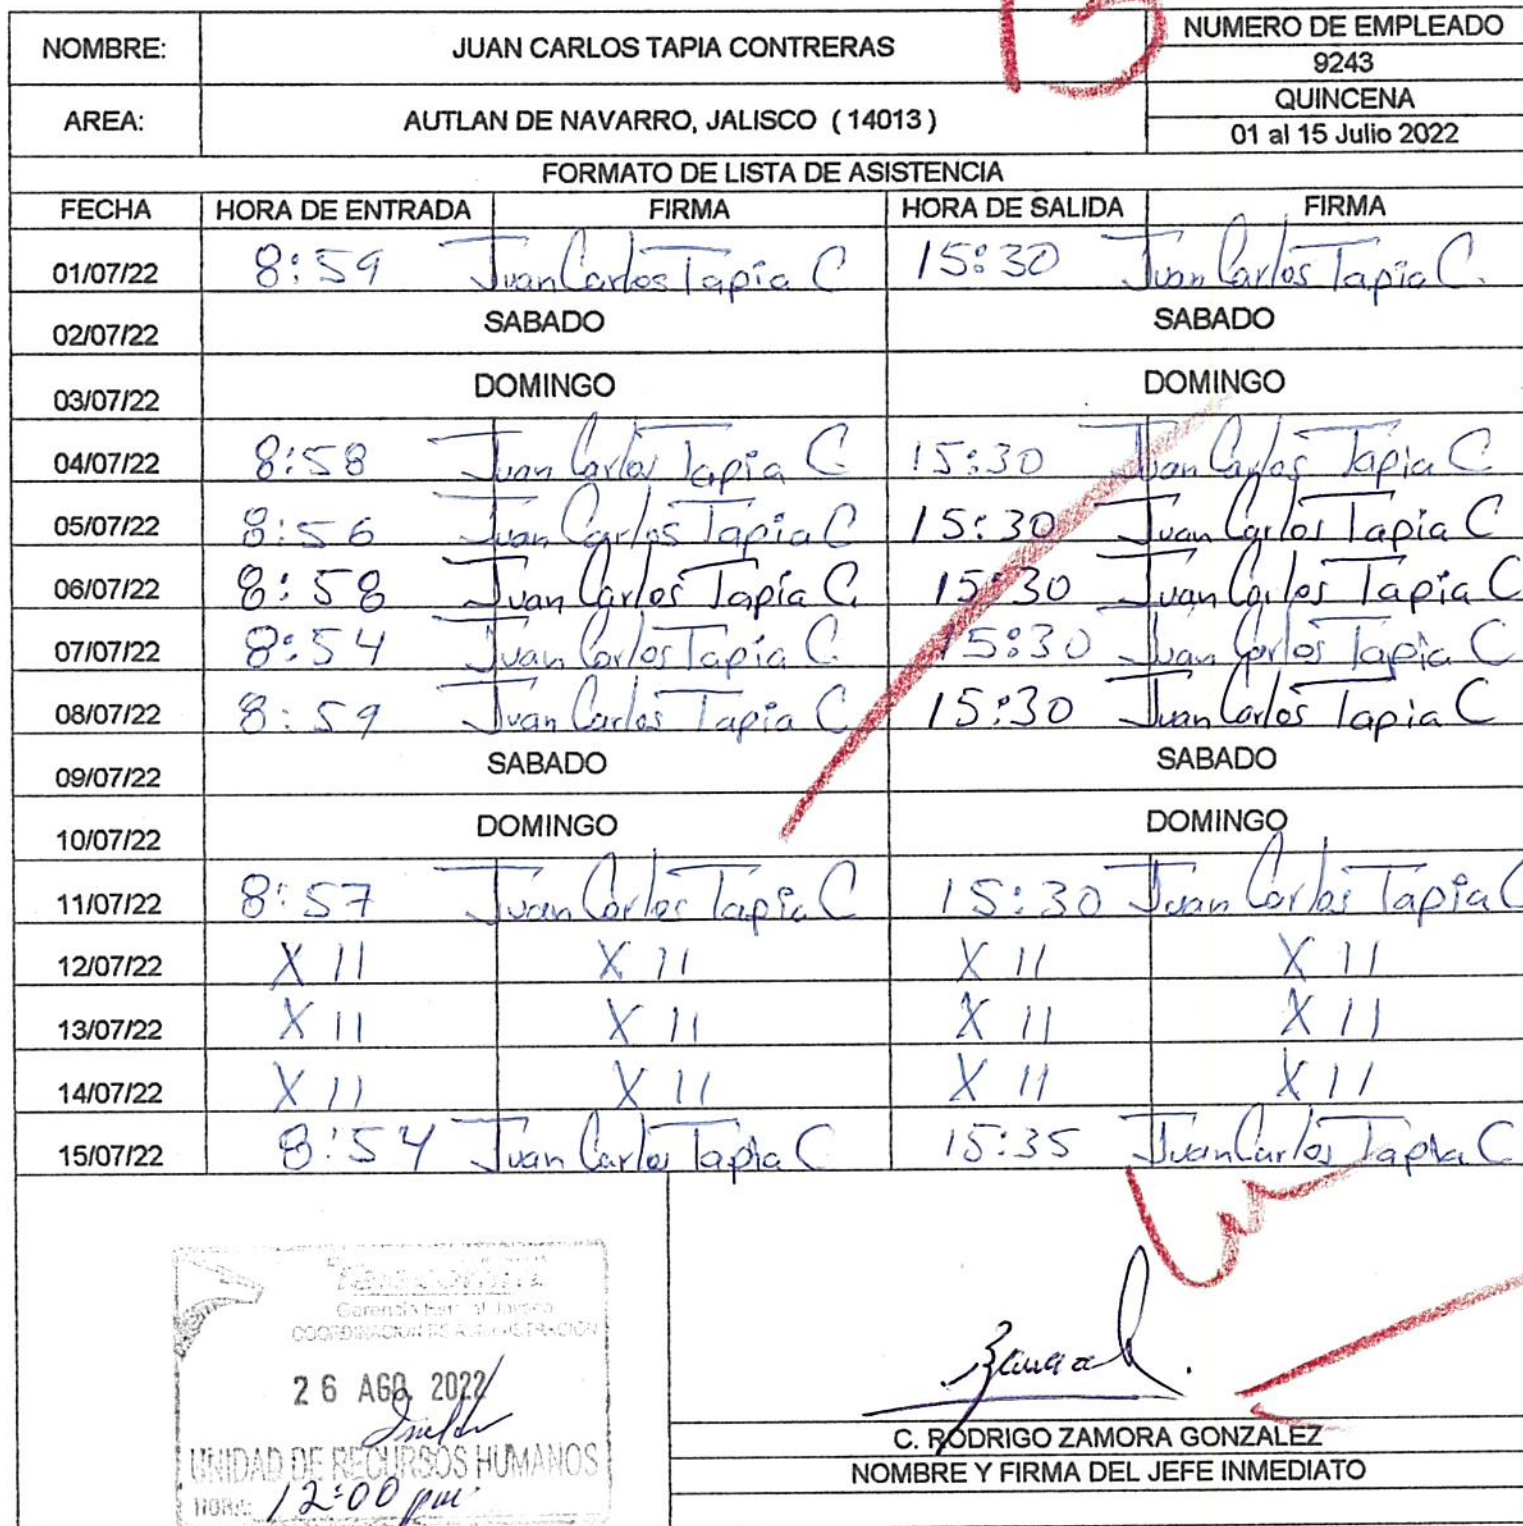 NOMBRE: JUAN CARLOS TAPIA CONTRERAS NUMERO DE EMPLEADO
9243
AREA: AUTLAN DE NAVARRO, JALISCO ( 14013 ) QUINCENA
01 al 15 Julio 2022
FORMATO DE LISTA DE ASISTENCIA
FECHA HORA DE ENTRADA FIRMA HORA DE SALIDA FIRMA
01/07/22 8:59 Juan Carlos Tapia C 15:30 Juan Carlos Tapia C.
02/07/22 SABADO SABADO
03/07/22 DOMINGO DOMINGO
04/07/22 8:58 Juan Carlos Tapia C. 15:30 Juan Carlos Tapia C
05/07/22 8:56 Juan Carlos Tapia C 15:30 Juan Carlos Tapia C
06/07/22 8:58 Juan Carlos Tapia C. 15:30 Juan Carlos Tapia C
07/07/22 8:54 Juan Carlos Tapia C. 15:30 Juan Carlos Tapia C
08/07/22 8:59 Juan Carlos Tapia C 15:30 Juan Carlos Tapia C
09/07/22 SABADO SABADO
10/07/22 DOMINGO DOMINGO
11/07/22 8:57 Juan Carlos Tapia C 15:30 Juan Carlos Tapia C
12/07/22 X 11 X 11 X 11 X 11
13/07/22 X 11 X 11 X 11 X 11
14/07/22 X 11 X 11 X 11 X 11
15/07/22 8:54 Juan Carlos Tapia C 15:35 Juan Carlos Tapia C
COORDINACION DE ADMINISTRACION
26 AGO 2022
UNIDAD DE RECURSOS HUMANOS
HORA: 12:00 pm
C. RODRIGO ZAMORA GONZALEZ
NOMBRE Y FIRMA DEL JEFE INMEDIATO